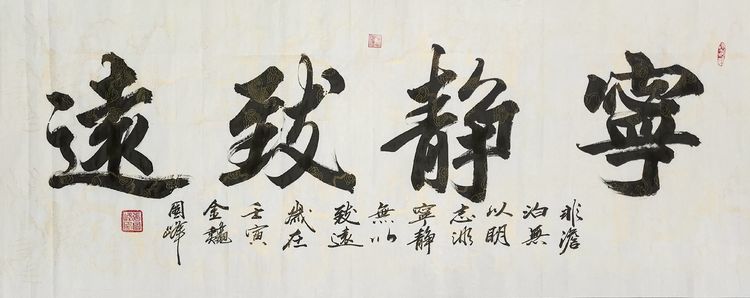 寧静致遠
非澹
泊無
以明
志非
寧静
無以
致遠
歲在
壬寅
金龝
國峰